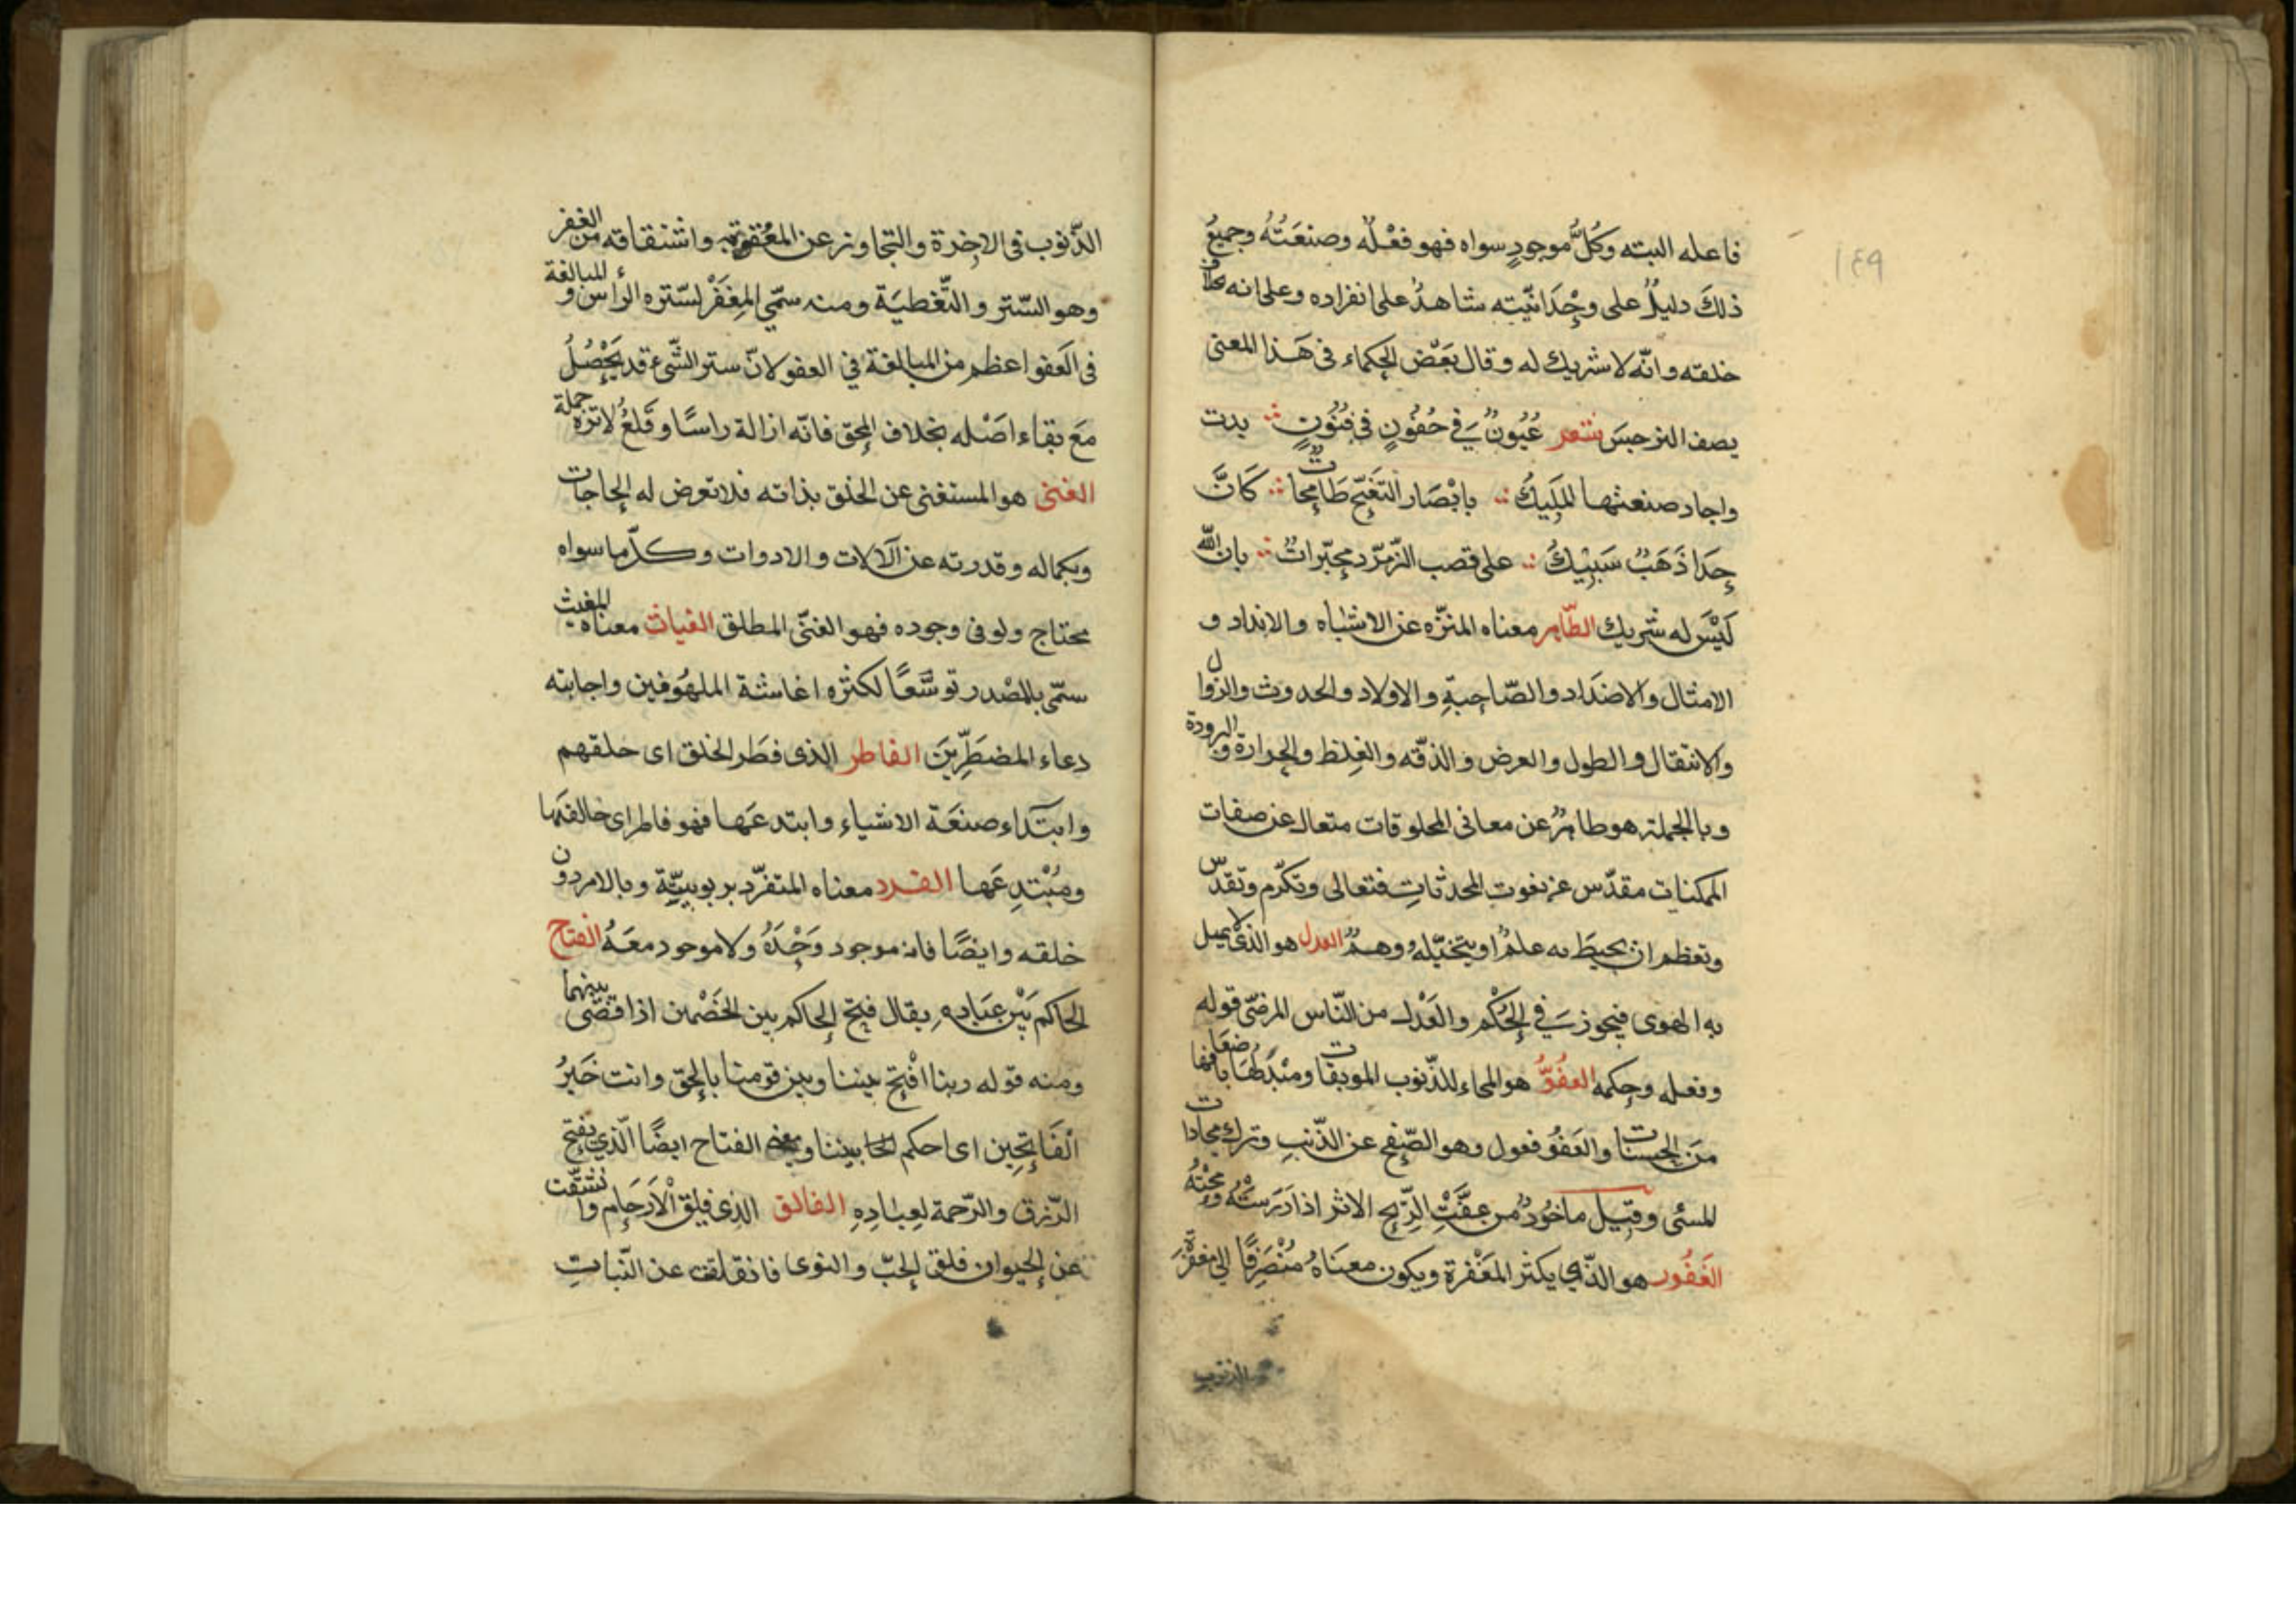 ١٤٩
فاعله البته وكُلُّ موجودٍ سواه فهو فعْلُه وصنعَتُهُ وجميعُ
ذلكَ دليلٌ على وحْدَانيّته شاهدٌ على انفراده وعلى انه
خلقه وانّه لا شريك له وقال بَعْض الحكماء فى هَذا المعنى
يصف النرجسَ شعر عُيُونٌ فِي جُفُونٍ فى فنُونٍ بدت
واجاد صنعتها المَلِيكُ بابْصَار التّغنّج طَامِحات كَانَّ
حِدَا ذَهَبٌ سَبِيْكُ على قصب الزّمرّد مخبّراتٌ بان اللّه
لَيْسَ له شريك الطّاهر معناه المنزّه عن الاشباه والانداد و
الامثال والاضدَاد والصّاحِبةِ والاولاد والحدوث والزوال
والانتقال والطول والعرض والدّقه والغِلظ والحرارة والبرودة
وبالجملة هو طاهرٌ عن معانى المخلوقات متعال عن صفات
الممكنات مقدّس عن نعوت المحدثاتِ فتعالى وتكرّم وتقدّس
وتعظم ان يحيطَ به علمٌ او يتخيّلهُ وهمٌ العدل هو الذى لا يميل
به الهوى فيجوز فِي الحُكْم والعَدْل من النّاس المرضّى قوله
وفعله وحكمه العفُوُّ هو المحاء للذّنوب الموبقات ومبْدَلُهَا باضعافها
منَ الحسنات والعَفوُ فعول وهو الصّفح عن الذّنبِ وترك مجازات
المسئى وقيل ماخُوذٌ من عفَّتِ الرِّيح الاثر اذا دَرَسَتْهُ ومحْتهُ
الغَفُور هو الذّي يكثر المغْفرة ويكون معنَاهُ مُنْصَرِفًا الى مغفرَة
الذنوب
الذّنوب فى الاخرة والتجاوز عن العُقوبة واشتقاقه من الغفر
وهو السّتر والتّغطيَة ومنه سمّي المِغفَرْ لسَتره الراسَ والمبالغة
فى العَفو اعظم من المبالغة فِي العفو لانّ ستر الشّىء قد يَحْصُلُ
مَعَ بقاء اصْله بخلاف المحق فانّه ازالة راسًا وقَلعُ لاثره جملة
الغنى هو المستغنى عن الخلق بذاته فلا تعرض له الحاجات
وبكماله وقدرته عن الآلات والادوات وكلّ ما سواه
محتاج ولو فى وجوده فهو الغنّى المطلق الغياث معناهُ المغيث
سمّى بالمصْدر توسّعًا لكثره اغاشة الملهُوفين واجابته
دعاء المضطَرِّينَ الفاطر الذى فطَر الخلق اى خلقهم
وابتَداء صنعَة الاشياء وابتدعَها فهو فاطر اى خالقها
ومُبْتدِعَها الفرد معناه المتفرّد بربوبيّة وبالامر دون
خلقه وايضًا فانه موجود وَحْدَهُ ولا موجود معَهُ الفتاح
الحاكم بَيْن عبَادهِ يقال فتح الحاكم بين الخَصْمين اذا قضَى بينهما
ومنه قوله ربنا افْتح بيننا وبين قومنا بالحق وانت خَيرُ
الْفَاتِحِين اى احكم بيننا ومعنى الفتاح ايضًا الّذي يفتح
الرّزق والرّحمة لعِبادِهِ الفالق الذى فلق الْاَرحَام وانشقّت
عن الحيوان فلق الحبّ والنوى فانفلقت عن النّباتِ